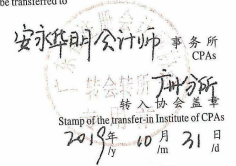 be transferred to
安永华明会计师 事务所
CPAs
广州分所
转入协会盖章
Stamp of the transfer-in Institute of CPAs
2019年 10月 31日
/y /m /d